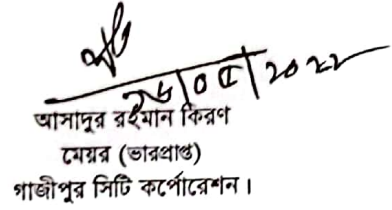 ২৬/০৫/২০২২
আসাদুর রহমান কিরণ
মেয়র (ভারপ্রাপ্ত)
গাজীপুর সিটি কর্পোরেশন।